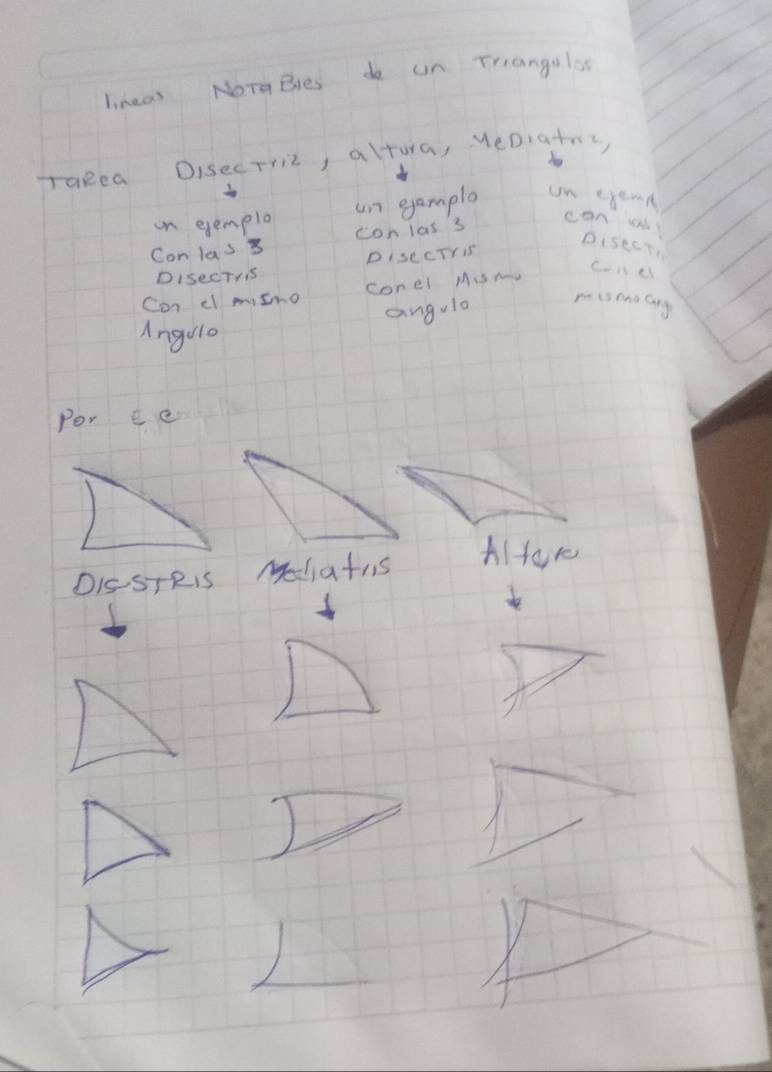 lineas NoTaBles de un Triangulos
TaRea DisecTriz, altura, MeDiatriz,
un ejemplo
Con las 3
DisecTris
Con el mismo
Angulo
un ejemplo
con las 3
DisecTris
con el Mismo
angulo
un
con las
con el
mismo
Por
DISSTRIS Mediatris Altura